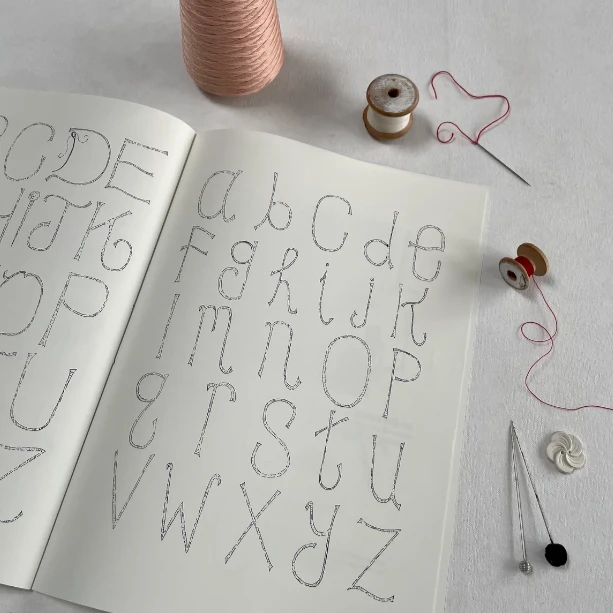 C D E
H I J K
P
U
Z
a b c d e
f g h i j k
l m n o p
q r s t u
v w x y z